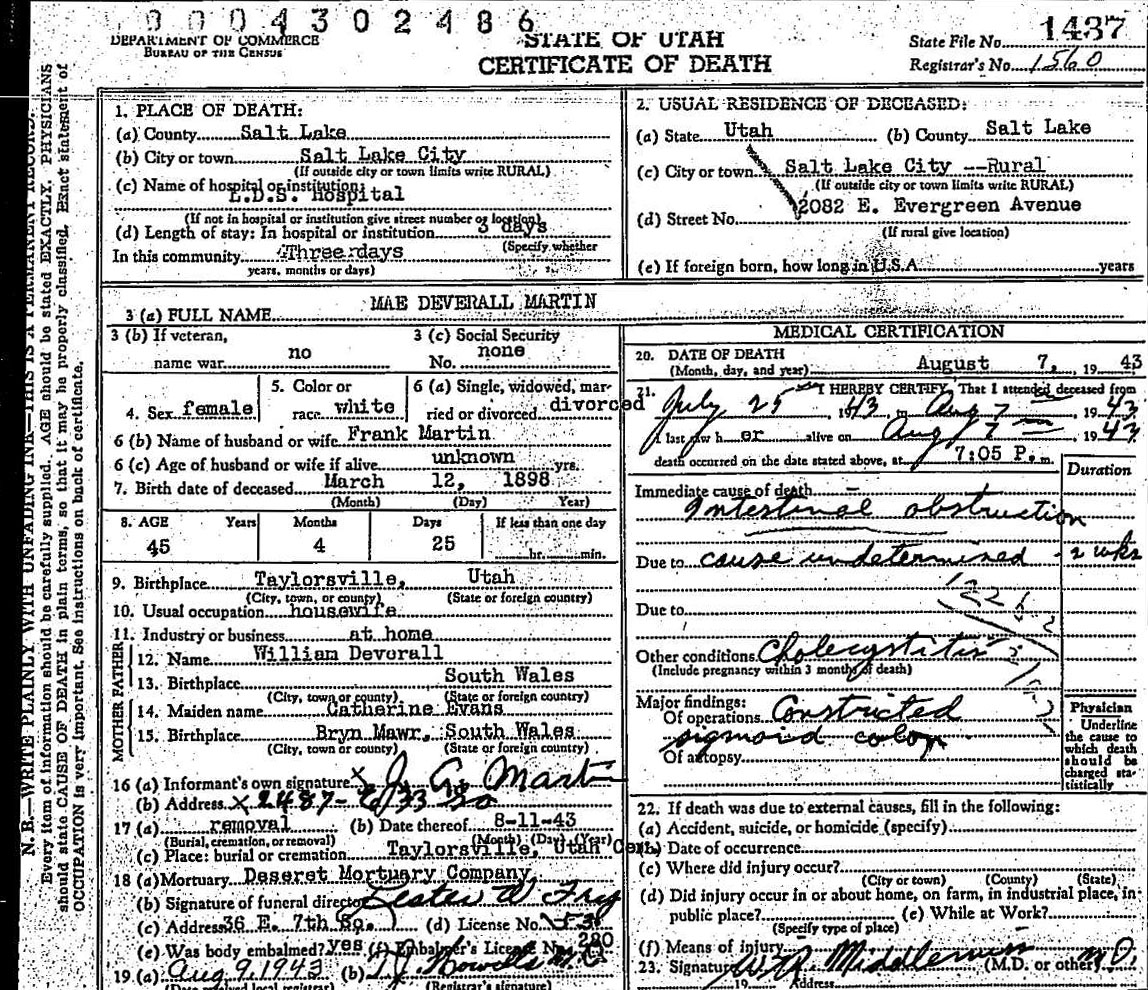 0 0 0 4 3 0 2 4 8 6
DEPARTMENT OF COMMERCE
BUREAU OF THE CENSUS
STATE OF UTAH
CERTIFICATE OF DEATH
State File No. 1437
Registrar's No. 1560
N. B.—WRITE PLAINLY WITH UNFADING INK—THIS IS A PERMANENT RECORD.
Every item of information should be carefully supplied. AGE should be stated EXACTLY. PHYSICIANS
should state CAUSE OF DEATH in plain terms, so that it may be properly classified. Exact statement of
OCCUPATION is very important. See instructions on back of certificate.
1. PLACE OF DEATH:
(a) County Salt Lake
(b) City or town Salt Lake City
(If outside city or town limits write RURAL)
(c) Name of hospital or institution:
L.D.S. Hospital
(If not in hospital or institution give street number or location)
(d) Length of stay: In hospital or institution 3 days
(Specify whether
In this community Three days
years, months or days)
2. USUAL RESIDENCE OF DECEASED:
(a) State Utah (b) County Salt Lake
(c) City or town Salt Lake City --Rural
(If outside city or town limits write RURAL)
(d) Street No. 2082 E. Evergreen Avenue
(If rural give location)
(e) If foreign born, how long in U.S.A. years
3 (a) FULL NAME MAE DEVERALL MARTIN
3 (b) If veteran,
name war no
3 (c) Social Security
No. none
4. Sex female
5. Color or
race white
6 (a) Single, widowed, mar-
ried or divorced divorced
6 (b) Name of husband or wife Frank Martin
6 (c) Age of husband or wife if alive unknown yrs.
7. Birth date of deceased March 12, 1898
(Month) (Day) Year)
8. AGE Years Months Days If less than one day
45 4 25 hr. min.
9. Birthplace Taylorsville, Utah
(City, town, or county) (State or foreign country)
10. Usual occupation housewife
11. Industry or business at home
FATHER
12. Name William Devorall
13. Birthplace South Wales
(City, town or county) (State or foreign country)
MOTHER
14. Maiden name Catherine Evans
15. Birthplace Bryn Mawr, South Wales
(City, town or county) (State or foreign country)
16 (a) Informant's own signature X J. G. Martin
(b) Address X 2487- E 33 So
17 (a) removal (b) Date thereof 8-11-43
(Burial, cremation, or removal) (Month) (Day) (Year)
(c) Place: burial or cremation Taylorsville, Utah Cem.
18 (a) Mortuary Deseret Mortuary Company
(b) Signature of funeral director Lester
(c) Address 36 E. 7th So. (d) License No.
(e) Was body embalmed? yes (f) Embalmer's License No. 280
19 (a) Aug 9, 1943 (b)
(Date received local registrar) (Registrar's signature)
MEDICAL CERTIFICATION
20. DATE OF DEATH
(Month, day, and year) August 7, 19 43
21. I HEREBY CERTIFY, That I attended deceased from
July 25 1943 to Aug 7, 19 43
I last saw h er alive on Aug 7, 19 43
death occurred on the date stated above, at 7:05 P. m.
Duration
Immediate cause of death
Intestinal obstruction
Due to cause undetermined - 2 wks
Due to
Other conditions Cholecystitis
(Include pregnancy within 3 months of death)
Major findings:
Of operations Constricted
sigmoid colon
Of autopsy
Physician
Underline
the cause to
which death
should be
charged sta-
tistically
22. If death was due to external causes, fill in the following:
(a) Accident, suicide, or homicide (specify)
(b) Date of occurrence
(c) Where did injury occur?
(City or town) (County) (State)
(d) Did injury occur in or about home, on farm, in industrial place, in
public place? (e) While at Work?
(Specify type of place)
(f) Means of injury
23. Signature (M.D. or other) M.D.
19 Address